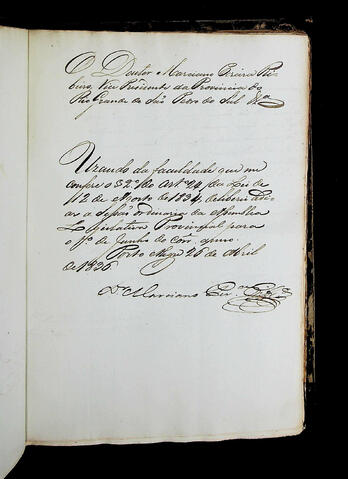 O Doutor Marciano Pereira Ri-
beiro, Vice Presidente da Provincia do
Rio Grande de São Pedro do Sul &a
Uzando da faculdade que me
confere o § 2º do Artº 24 da Lei de
12 de Agosto de 1834, deliberei
ar a Sessão ordinaria da Assemblea
Legislativa Provincial para
o 1º de Junho do corr. anno.
Porto Alegre 26 de Abril
de 1836
Dr Marciano Perª